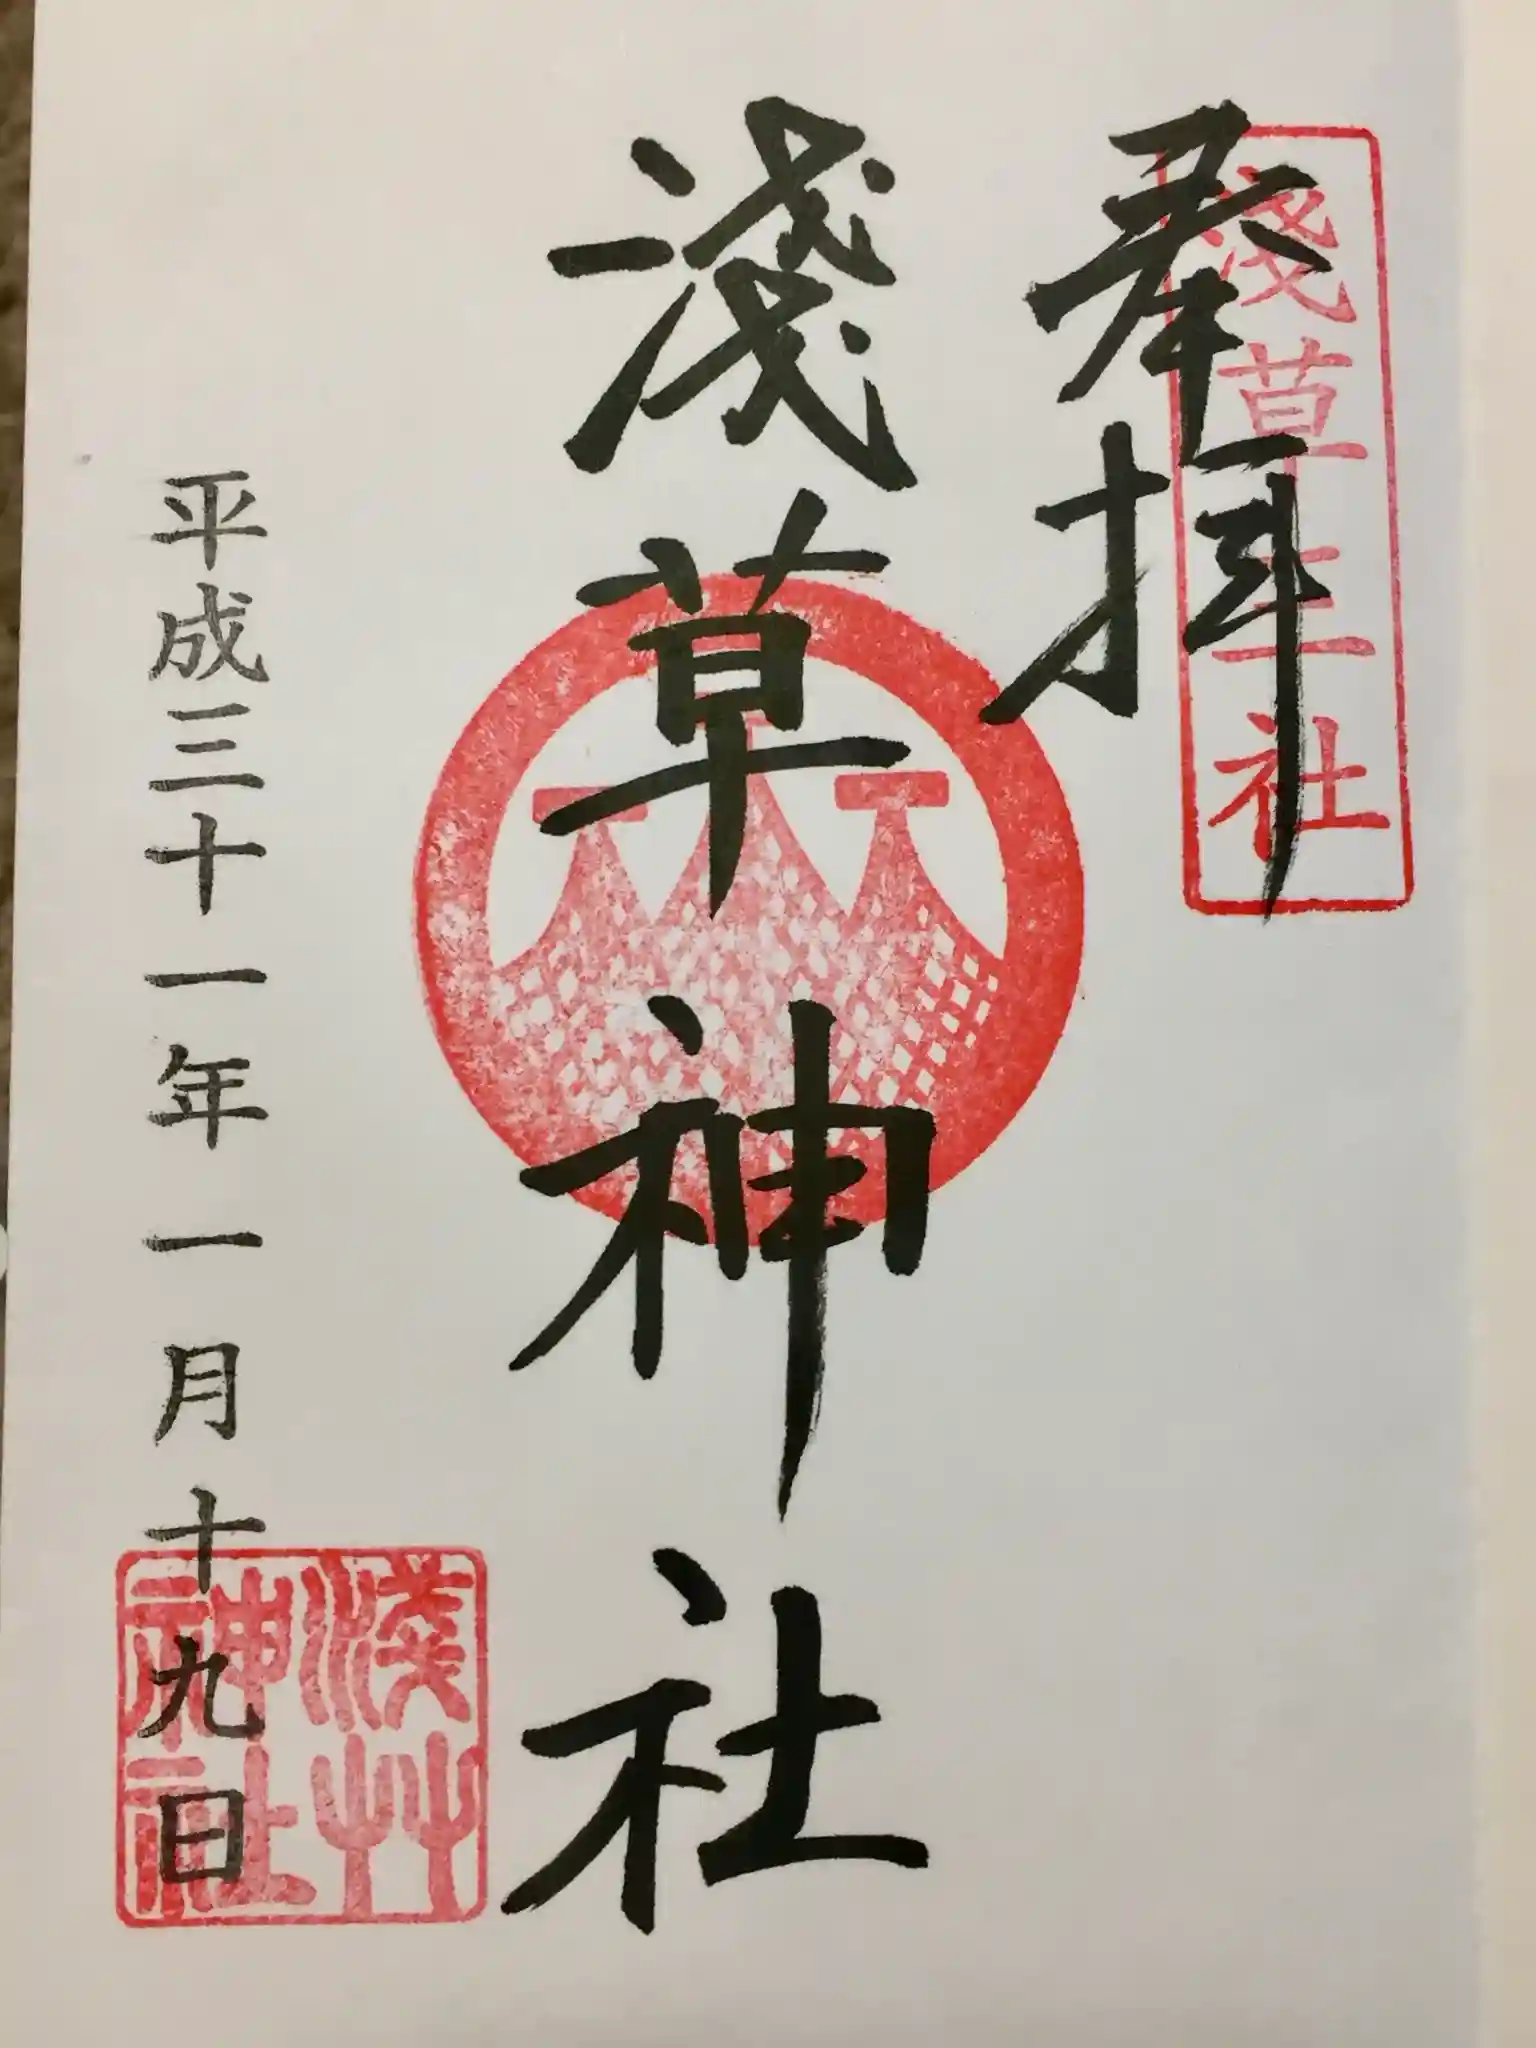 奉拝
淺草三社
淺草神社
平成三十一年一月十九日
淺艸
神社